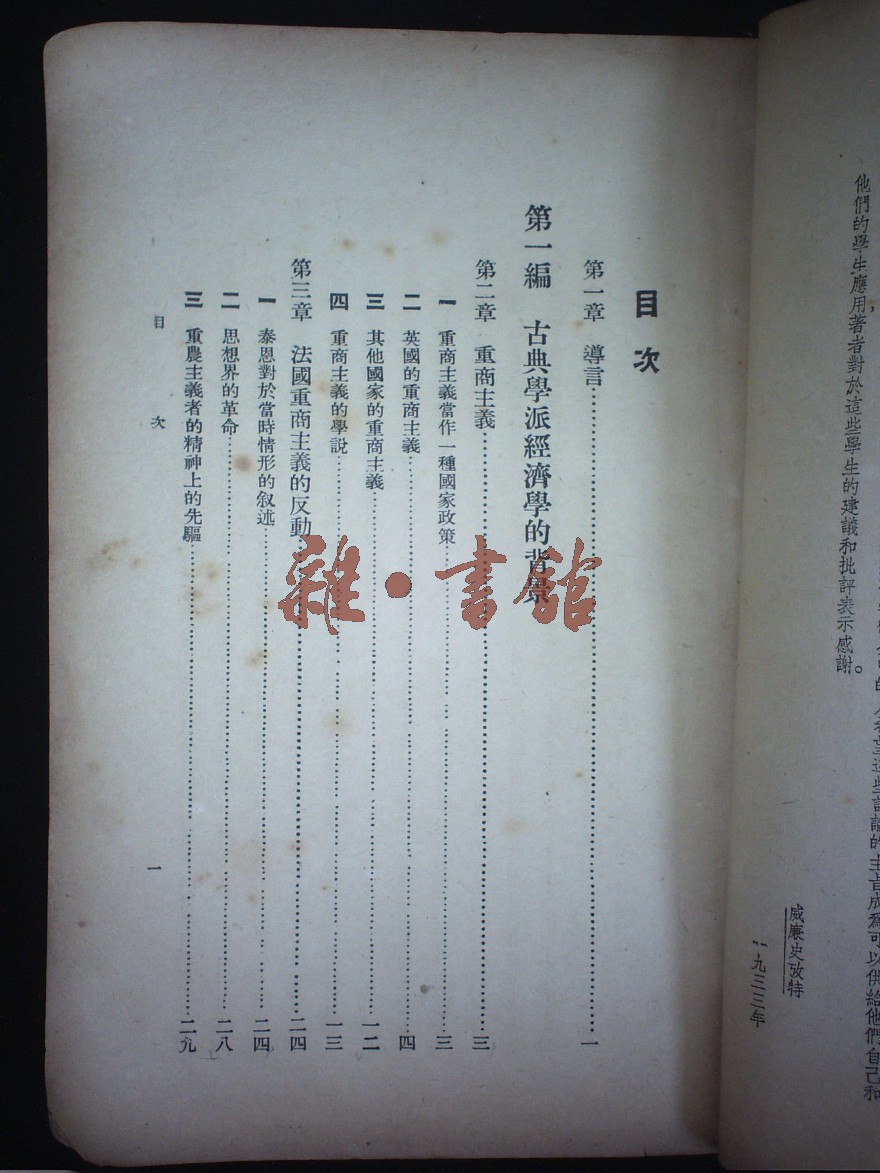 他們的學生應用著者對於這些學生的建議和批評表示感謝。
威廉史攷特
一九三三年
目次
第一章 導言…………一
第一編 古典學派經濟學的背景
第二章 重商主義…………三
一 重商主義當作一種國家政策…………三
二 英國的重商主義…………四
三 其他國家的重商主義…………一二
四 重商主義的學說…………一三
第三章 法國重商主義的反動…………二四
一 泰恩對於當時情形的叙述…………二四
二 思想界的革命…………二八
三 重農主義者的精神上的先驅…………二九
目次
一
雜·書館